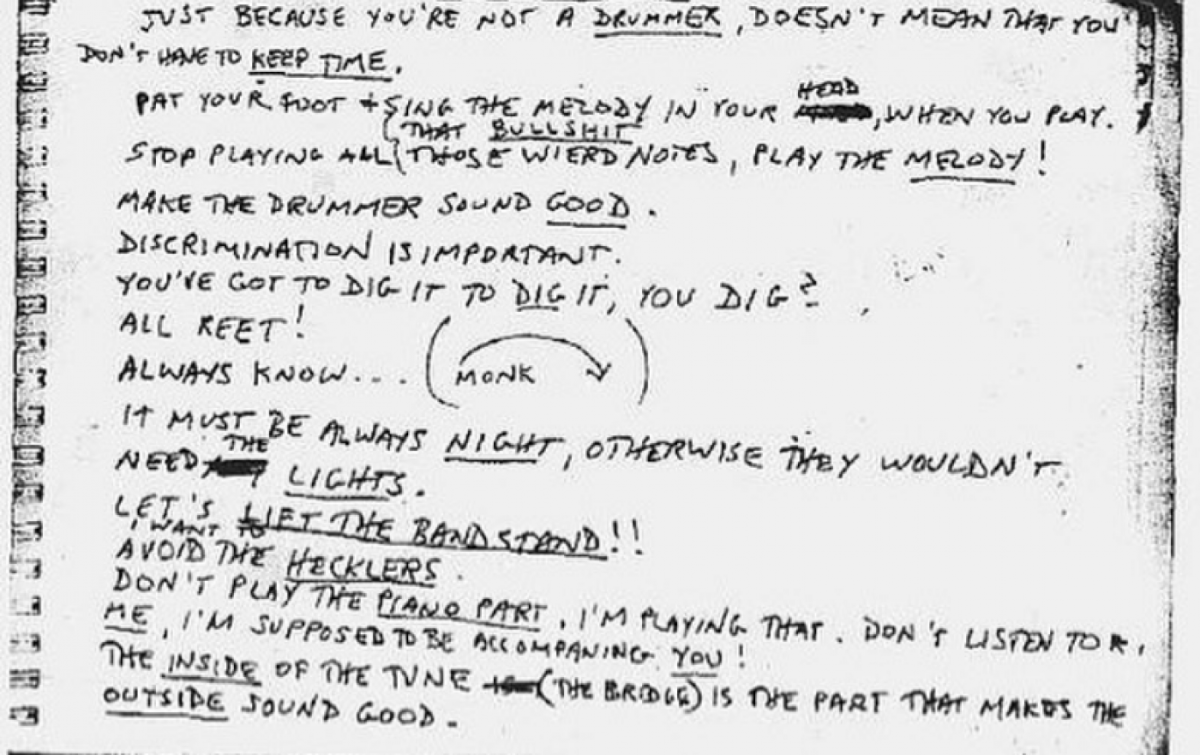 JUST BECAUSE YOU'RE NOT A DRUMMER, DOESN'T MEAN THAT YOU
DON'T HAVE TO KEEP TIME.
PAT YOUR FOOT + SING THE MELODY IN YOUR HEAD, WHEN YOU PLAY.
THAT BULLSHIT
STOP PLAYING ALL THOSE WIERD NOTES, PLAY THE MELODY!
MAKE THE DRUMMER SOUND GOOD.
DISCRIMINATION IS IMPORTANT.
YOU'VE GOT TO DIG IT TO DIG IT, YOU DIG?
ALL REET!
ALWAYS KNOW... (MONK)
IT MUST BE ALWAYS NIGHT, OTHERWISE THEY WOULDN'T
NEED THE LIGHTS.
LET'S LIFT THE BAND STAND!!
I WANT TO
AVOID THE HECKLERS.
DON'T PLAY THE PIANO PART, I'M PLAYING THAT. DON'T LISTEN TO
ME, I'M SUPPOSED TO BE ACCOMPANING YOU!
THE INSIDE OF THE TUNE (THE BRIDGE) IS THE PART THAT MAKES THE
OUTSIDE SOUND GOOD.